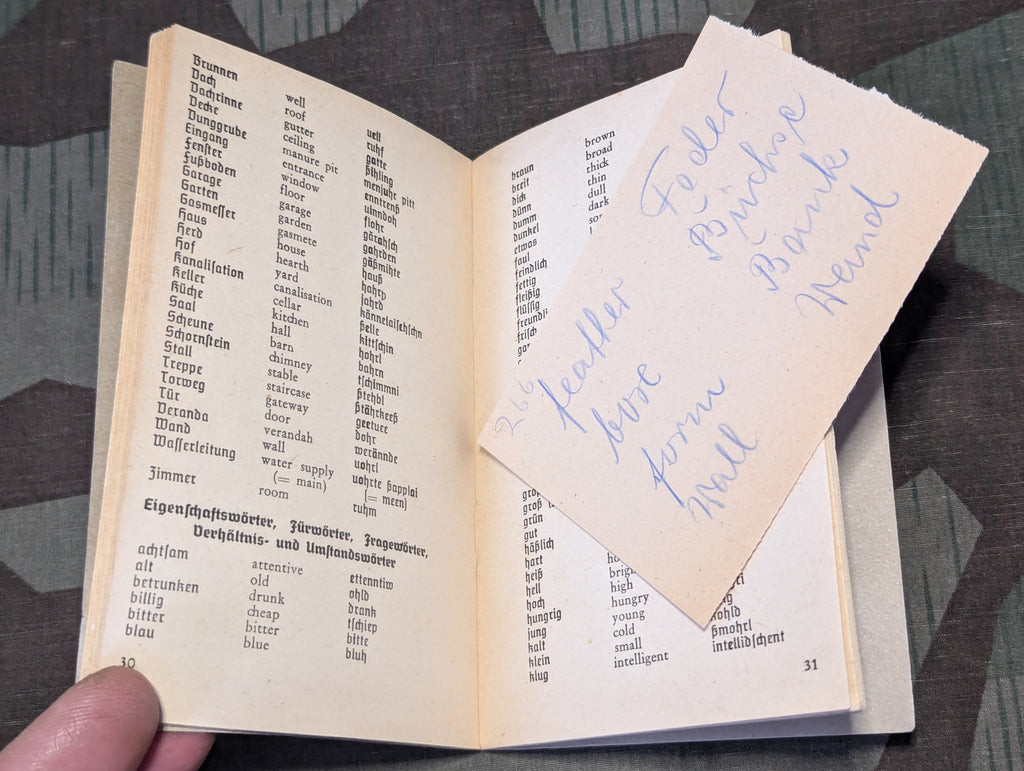 Brunnen well uell
Dach roof ruhf
Dachrinne gutter gatte
Decke ceiling ßihling
Dunggrube manure pit menjuhr pitt
Eingang entrance enntrenß
Fenster window uinndoh
Fußboden floor flohr
Garage garage gärahsch
Garten garden gahrden
Gasmesser gasmete gäßmihte
Haus house hauß
Herd hearth hahrp
Hof yard jahrd
Kanalisation canalisation kännelaisehschn
Keller cellar ßelle
Küche kitchen kittschin
Saal hall hohrl
Scheune barn bahrn
Schornstein chimney tschimmni
Stall stable ßtehbl
Treppe staircase ßtährkeeß
Torweg gateway geetuee
Tür door dohr
Veranda verandah werännde
Wand wall uohrl
Wasserleitung water supply uohrte ßapplai
(= main) (= meen)
Zimmer room ruhm
Eigenschaftswörter, Fürwörter, Fragewörter,
Verhältnis- und Umstandswörter
achtsam attentive ettenntiw
alt old ohld
betrunken drunk drank
billig cheap tschiep
bitter bitter bitte
blau blue bluh
30
braun brown
breit broad
dick thick
dünn thin
dumm dull
dunkel dark
etwas
faul
feindlich
fettig
fleißig
flüssig
frisch
266
feather Feder
boxe Büchse
form Bank
Wall Wand
groß
grün
gut
häßlich
hart
heiß
hell
hoch high
hungrig hungry
jung young
kalt cold
klein small ßmohrl
klug intelligent intellidschent
31